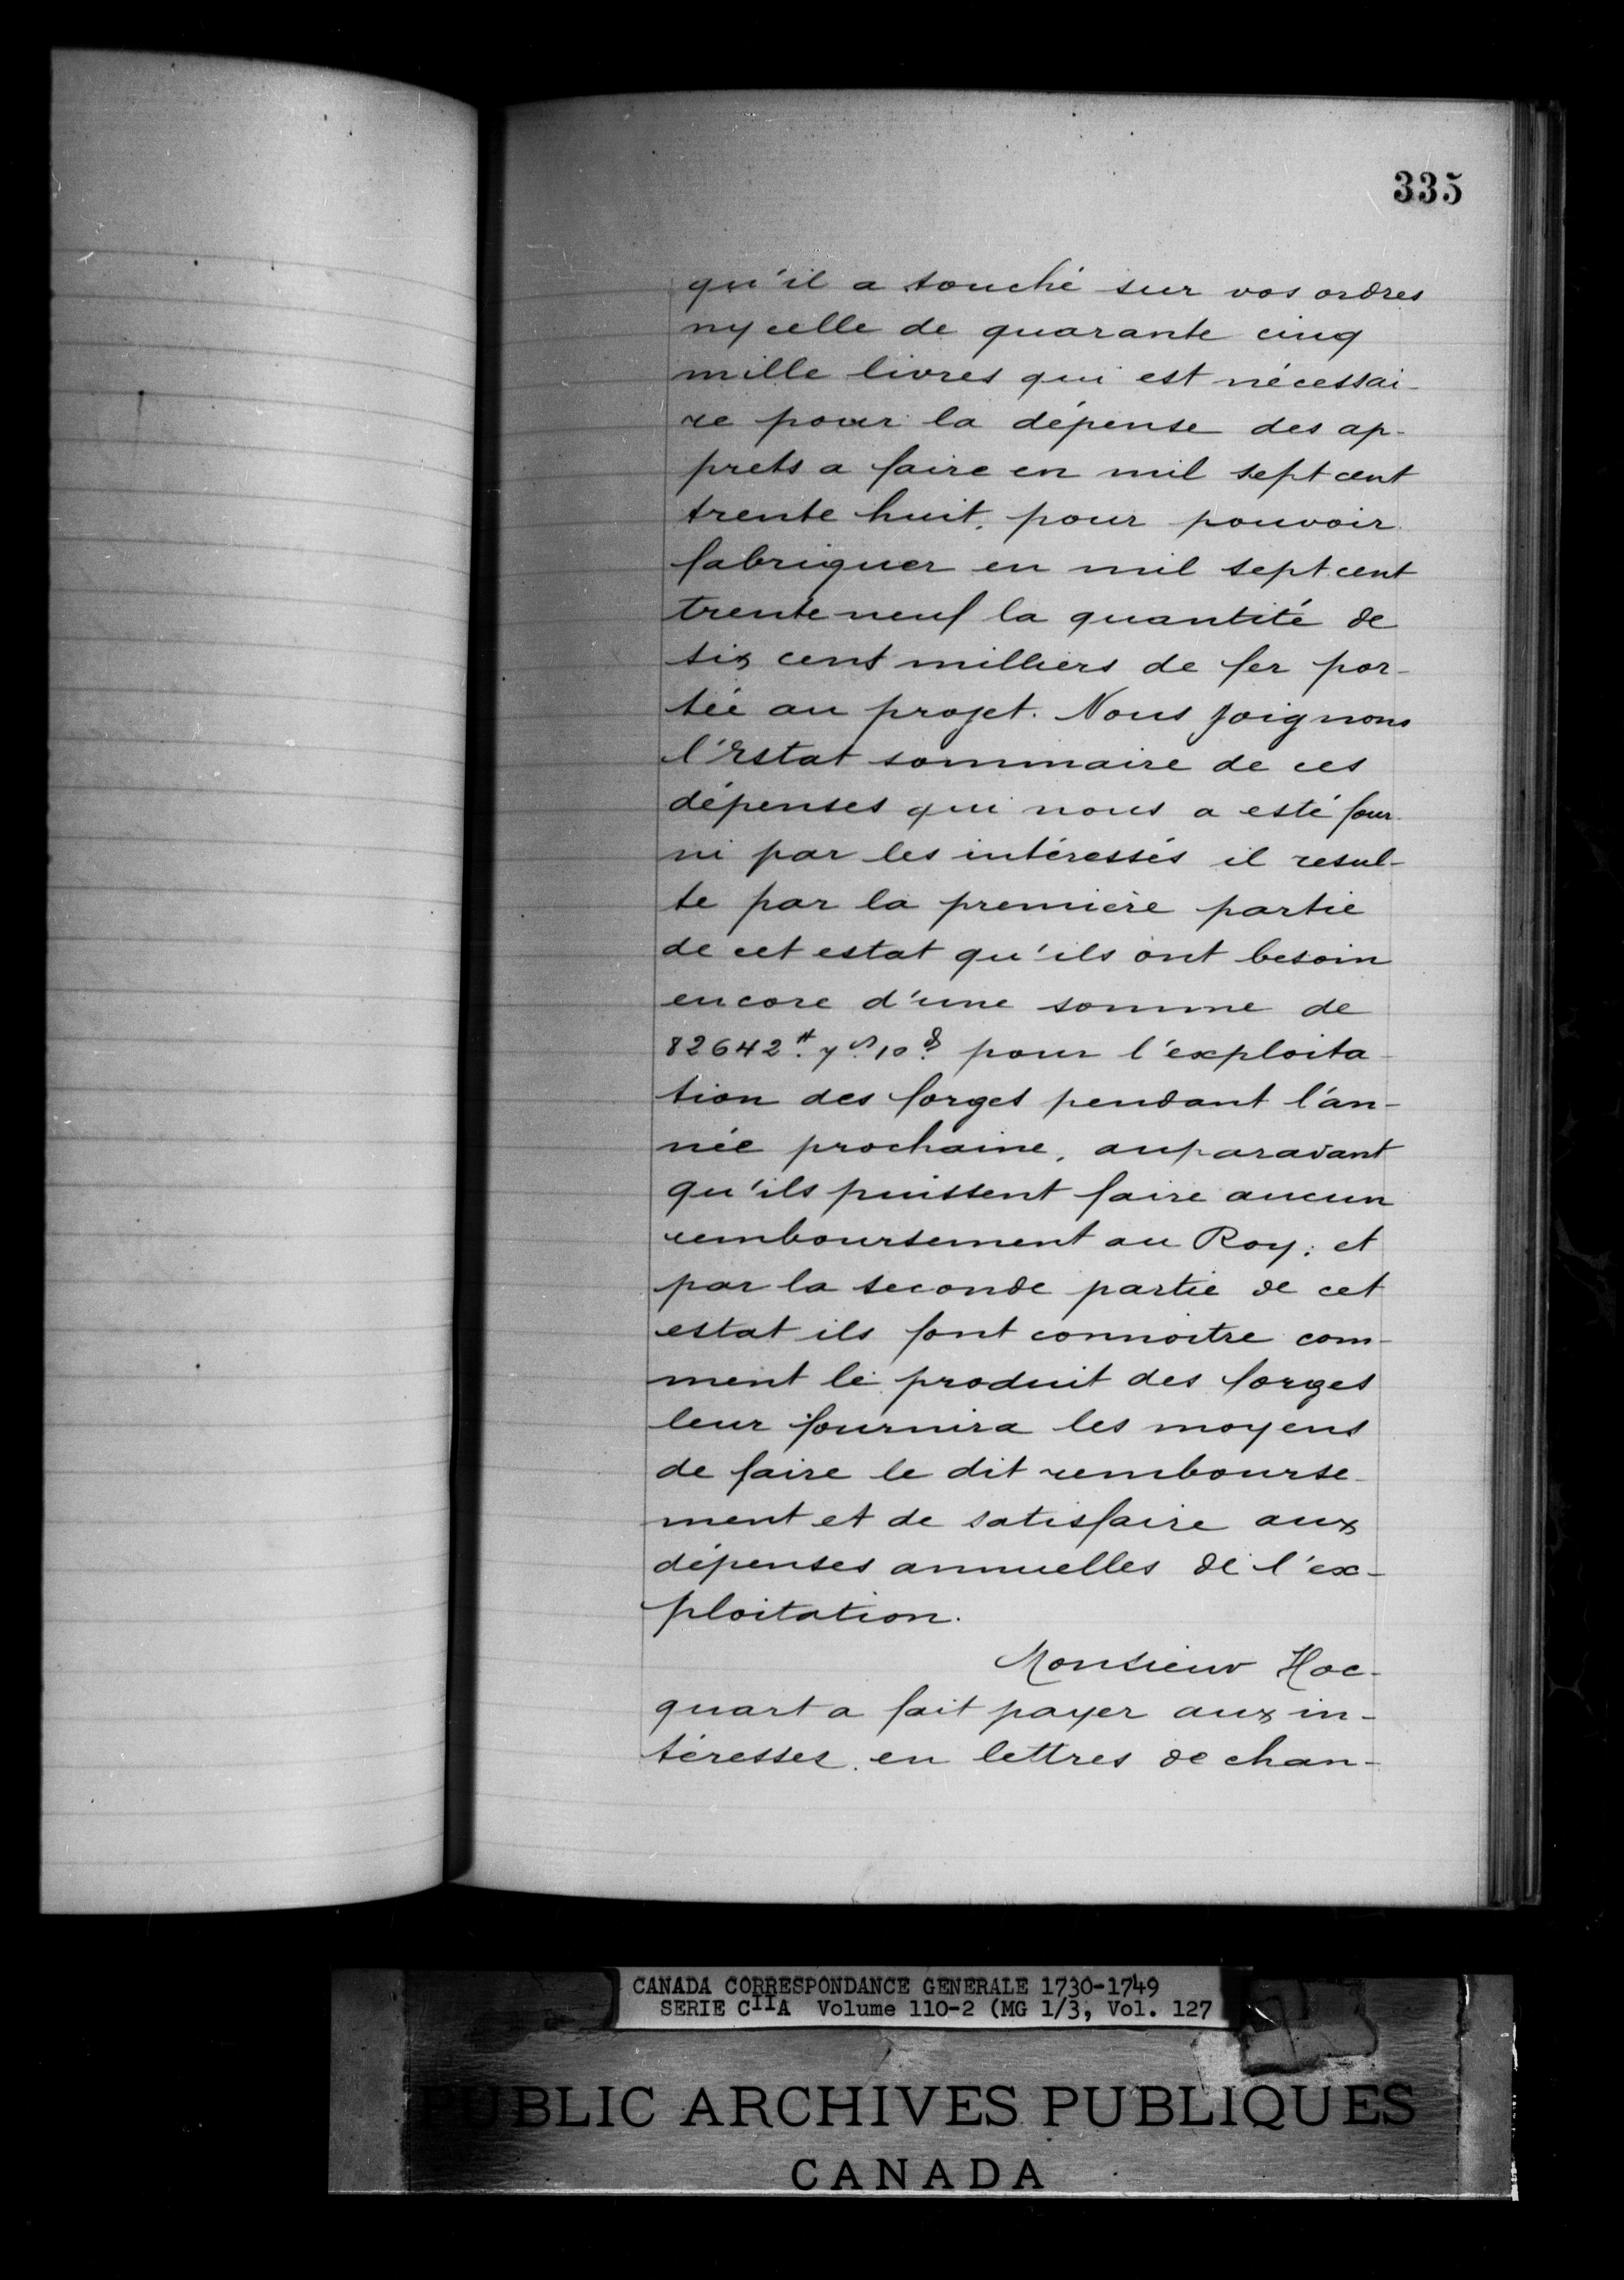 335
qu'il a touché sur vos ordres
ny celle de quarante cinq
mille livres qui est nécessai-
re pour la dépense des ap-
prets a faire en mil sept cent
trente huit, pour pouvoir
fabriquer en mil sept cent
trente neuf la quantité de
six cent milliers de fer por-
tée au projet. Nous joignons
l'Estat sommaire de ces
dépenses qui nous a esté four-
ni par les intéressés il resul-
te par la première partie
de cet estat qu'ils ont besoin
encore d'une somme de
82642# 7s 10d pour l'exploita-
tion des forges pendant l'an-
née prochaine, auparavant
qu'ils puissent faire aucun
remboursement au Roy; et
par la seconde partie de cet
estat ils font connoitre com-
ment le produit des forges
leur fournira les moyens
de faire le dit rembourse-
ment et de satisfaire aux
dépenses annuelles de l'ex-
ploitation.
Monsieur Hoc-
quart a fait payer aux in-
téresses en lettres de chan-
CANADA CORRESPONDANCE GENERALE 1730-1749
SERIE CIIA Volume 110-2 (MG 1/3, Vol. 127
PUBLIC ARCHIVES PUBLIQUES
CANADA